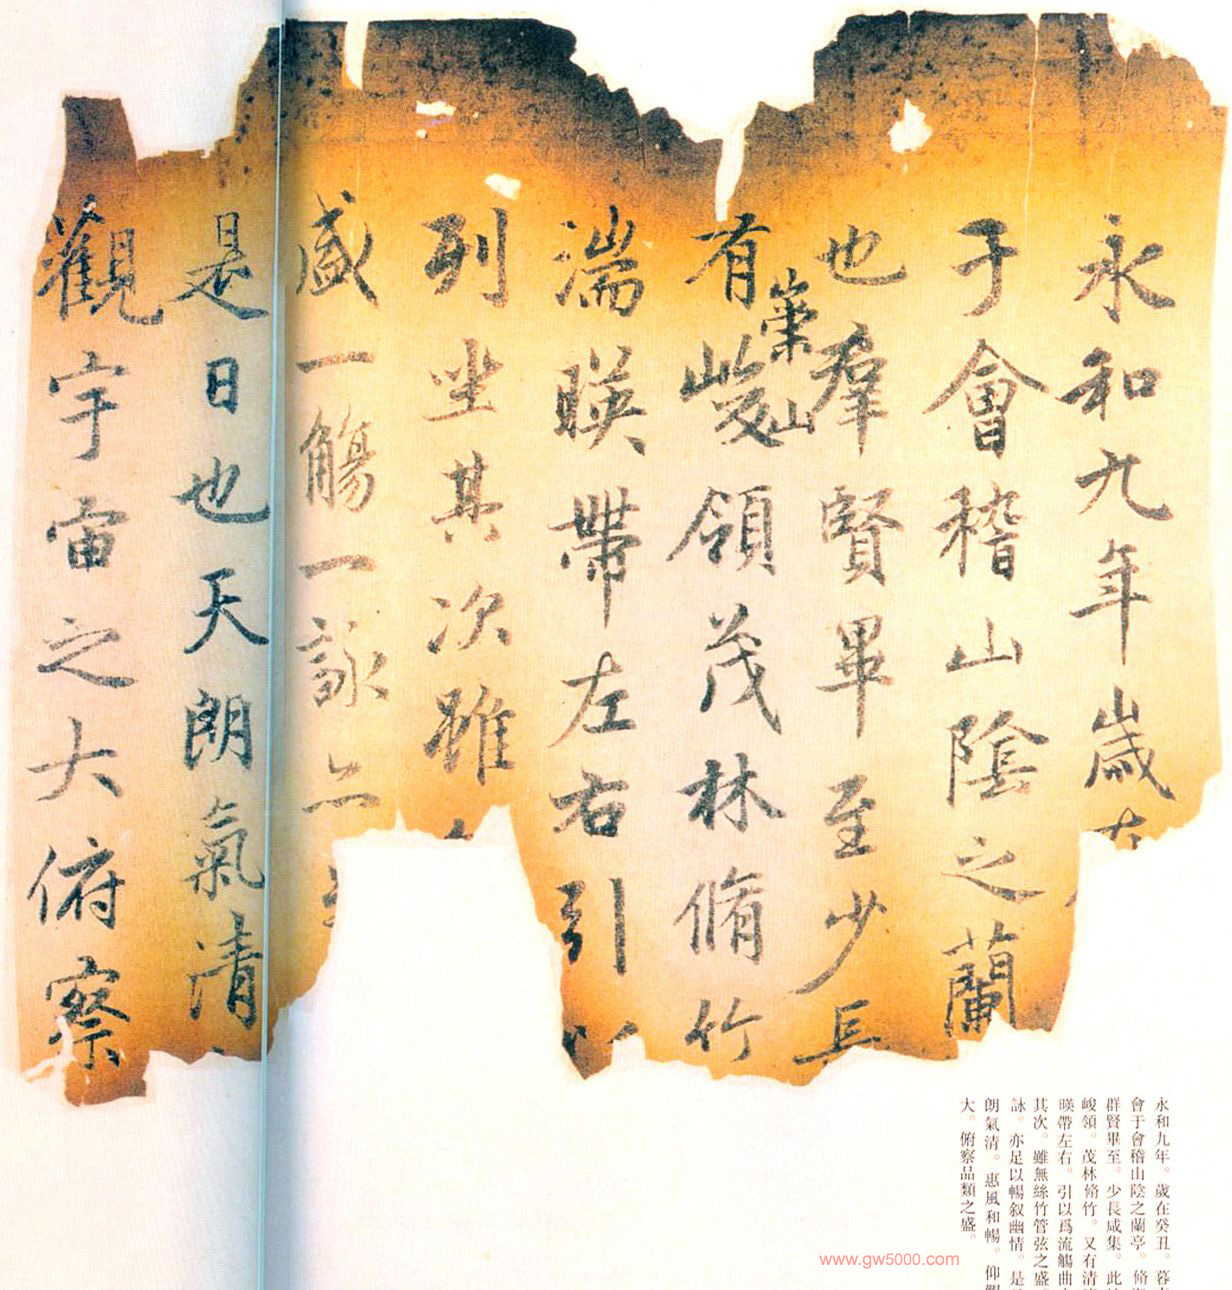 永和九年歲在
于會稽山陰之蘭
也羣賢畢至少長
有崇山峻領茂林脩竹
湍暎帶左右引以
列坐其次雖
盛一觴一詠亦
是日也天朗氣清
觀宇宙之大俯察
永和九年。歲在癸丑。暮
會于會稽山陰之蘭亭。脩
群賢畢至。少長咸集。此
峻領。茂林脩竹。又有清
暎帶左右。引以爲流觴曲
其次。雖無絲竹管弦之盛。
詠。亦足以暢叙幽情。是
朗氣清。惠風和暢。仰
大。俯察品類之盛。
www.gw5000.com